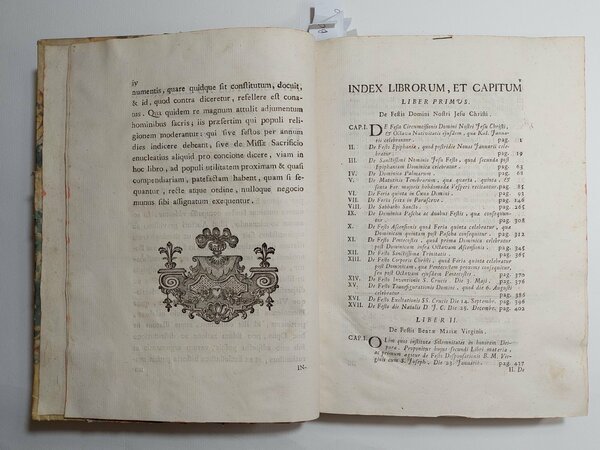 iv
numentis, quare quidque sit constitutum, docuit,
& id, quod contra diceretur, refellere est cona-
tus. Qui quidem re magnum attulit adjumentum
hominibus sacris; iis præsertim qui populi reli-
gionem moderantur: qui sive fastos per annum
dies indicere debeant, sive de Missæ Sacrificio
enucleatius aliquid pro concione dicere, viam in
hoc libro, ad populi utilitatem proximam & quasi
compendiariam, patefactam habent, quam si se-
quantur, recte atque ordine, nulloque negocio
munus sibi assignatum exequentur.
IN-
v
INDEX LIBRORUM, ET CAPITUM
LIBER PRIMUS.
De Festis Domini Nostri Jesu Christi.
CAP. I. DE Festo Circumcisionis Domini Nostri Jesu Christi,
seu Octava Nativitatis ejusdem, quæ Kal. Januarii
celebratur. pag. 1
II. De Festo Epiphaniæ, quod postridie Nonas Januarii cele-
bratur. pag. 19
III. De Sanctissimi Nominis Jesu Festo, quod secunda post
Epiphaniam Dominica celebratur. pag. 63
IV. De Dominica Palmarum. pag. 68
V. De Matutinis Tenebrarum, quæ quarta, quinta, &
sexta Fer. majoris hebdomadæ Vesperi recitantur. pag. 85
VI. De Feria quinta in Cœna Domini. pag. 93
VII. De Feria sexta in Parasceve. pag. 146
VIII. De Sabbatho Sancto. pag. 265
IX. De Dominica Paschæ ac duabus Festis, quæ consequun-
tur. pag. 308
X. De Festo Ascensionis quod Feria quinta celebratur, quæ
Dominicam quintam post Pascha consequitur. pag. 322
XI. De Festo Pentecostes, quod prima Dominica celebratur
post Dominicam infra Octavam Ascensionis. pag. 345
XII. De Festo Sanctissimæ Trinitatis. pag. 365
XIII. De Festo Corporis Christi, quod Feria quinta celebratur
post Dominicam, quæ Pentecosten proxime consequitur,
seu post Octavam ejusdem Pentecostes. pag. 370
XIV. De Festo Inventionis S. Crucis. Die 3. Maji. pag. 376
XV. De Festo Transfigurationis Domini, quod die 6. Augusti
celebratur. pag. 385
XVI. De Festo Exaltationis SS. Crucis Die 14. Septembr. pag. 396
XVII. De Festo die Natalis D. J. C. Die 25. Decembr. pag. 402
LIBER II.
De Festis Beatæ Mariæ Virginis.
CAP. I. OLim quot instituta Solemnitates in honorem Dei-
paræ. Proponitur hujus secundi Libri materia,
ac primum agitur de Festo Desponsationis B. M. Vir-
ginis cum S. Joseph. Die 23. Januarii. pag. 427
II. De